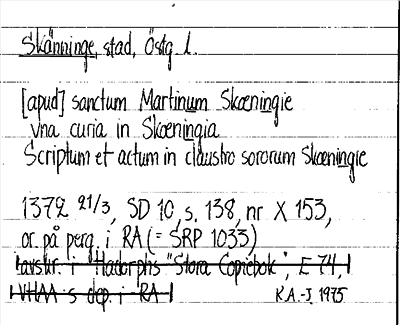 Skänninge, stad, Östg l.
[apud] sanctum Martinum Skæningie
vna curia in Skæningia
Scriptum et actum in claustro sororum Skæningie
1372 21/3, SD 10, s. 138, nr X 153,
or. på perg. i RA (= SRP 1033)
avskr. i Hadorphs "Stora Copiebok", E 74,
VHAA:s dep. i RA
K.A.-J. 1975